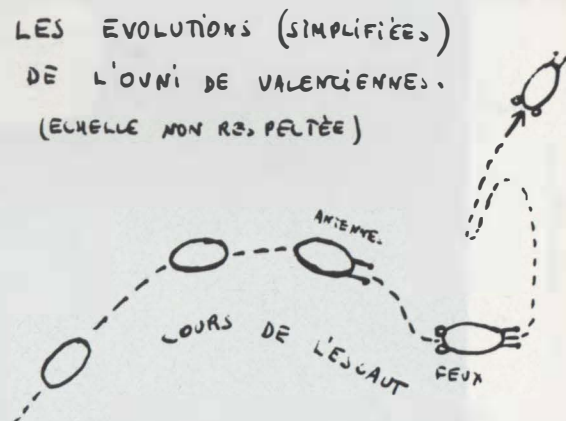 LES EVOLUTIONS (SIMPLIFIÉES)
DE L'OVNI DE VALENCIENNES.
(ECHELLE NON RESPECTÉE)
ANTENNE.
COURS DE L'ESCAUT
FEUX